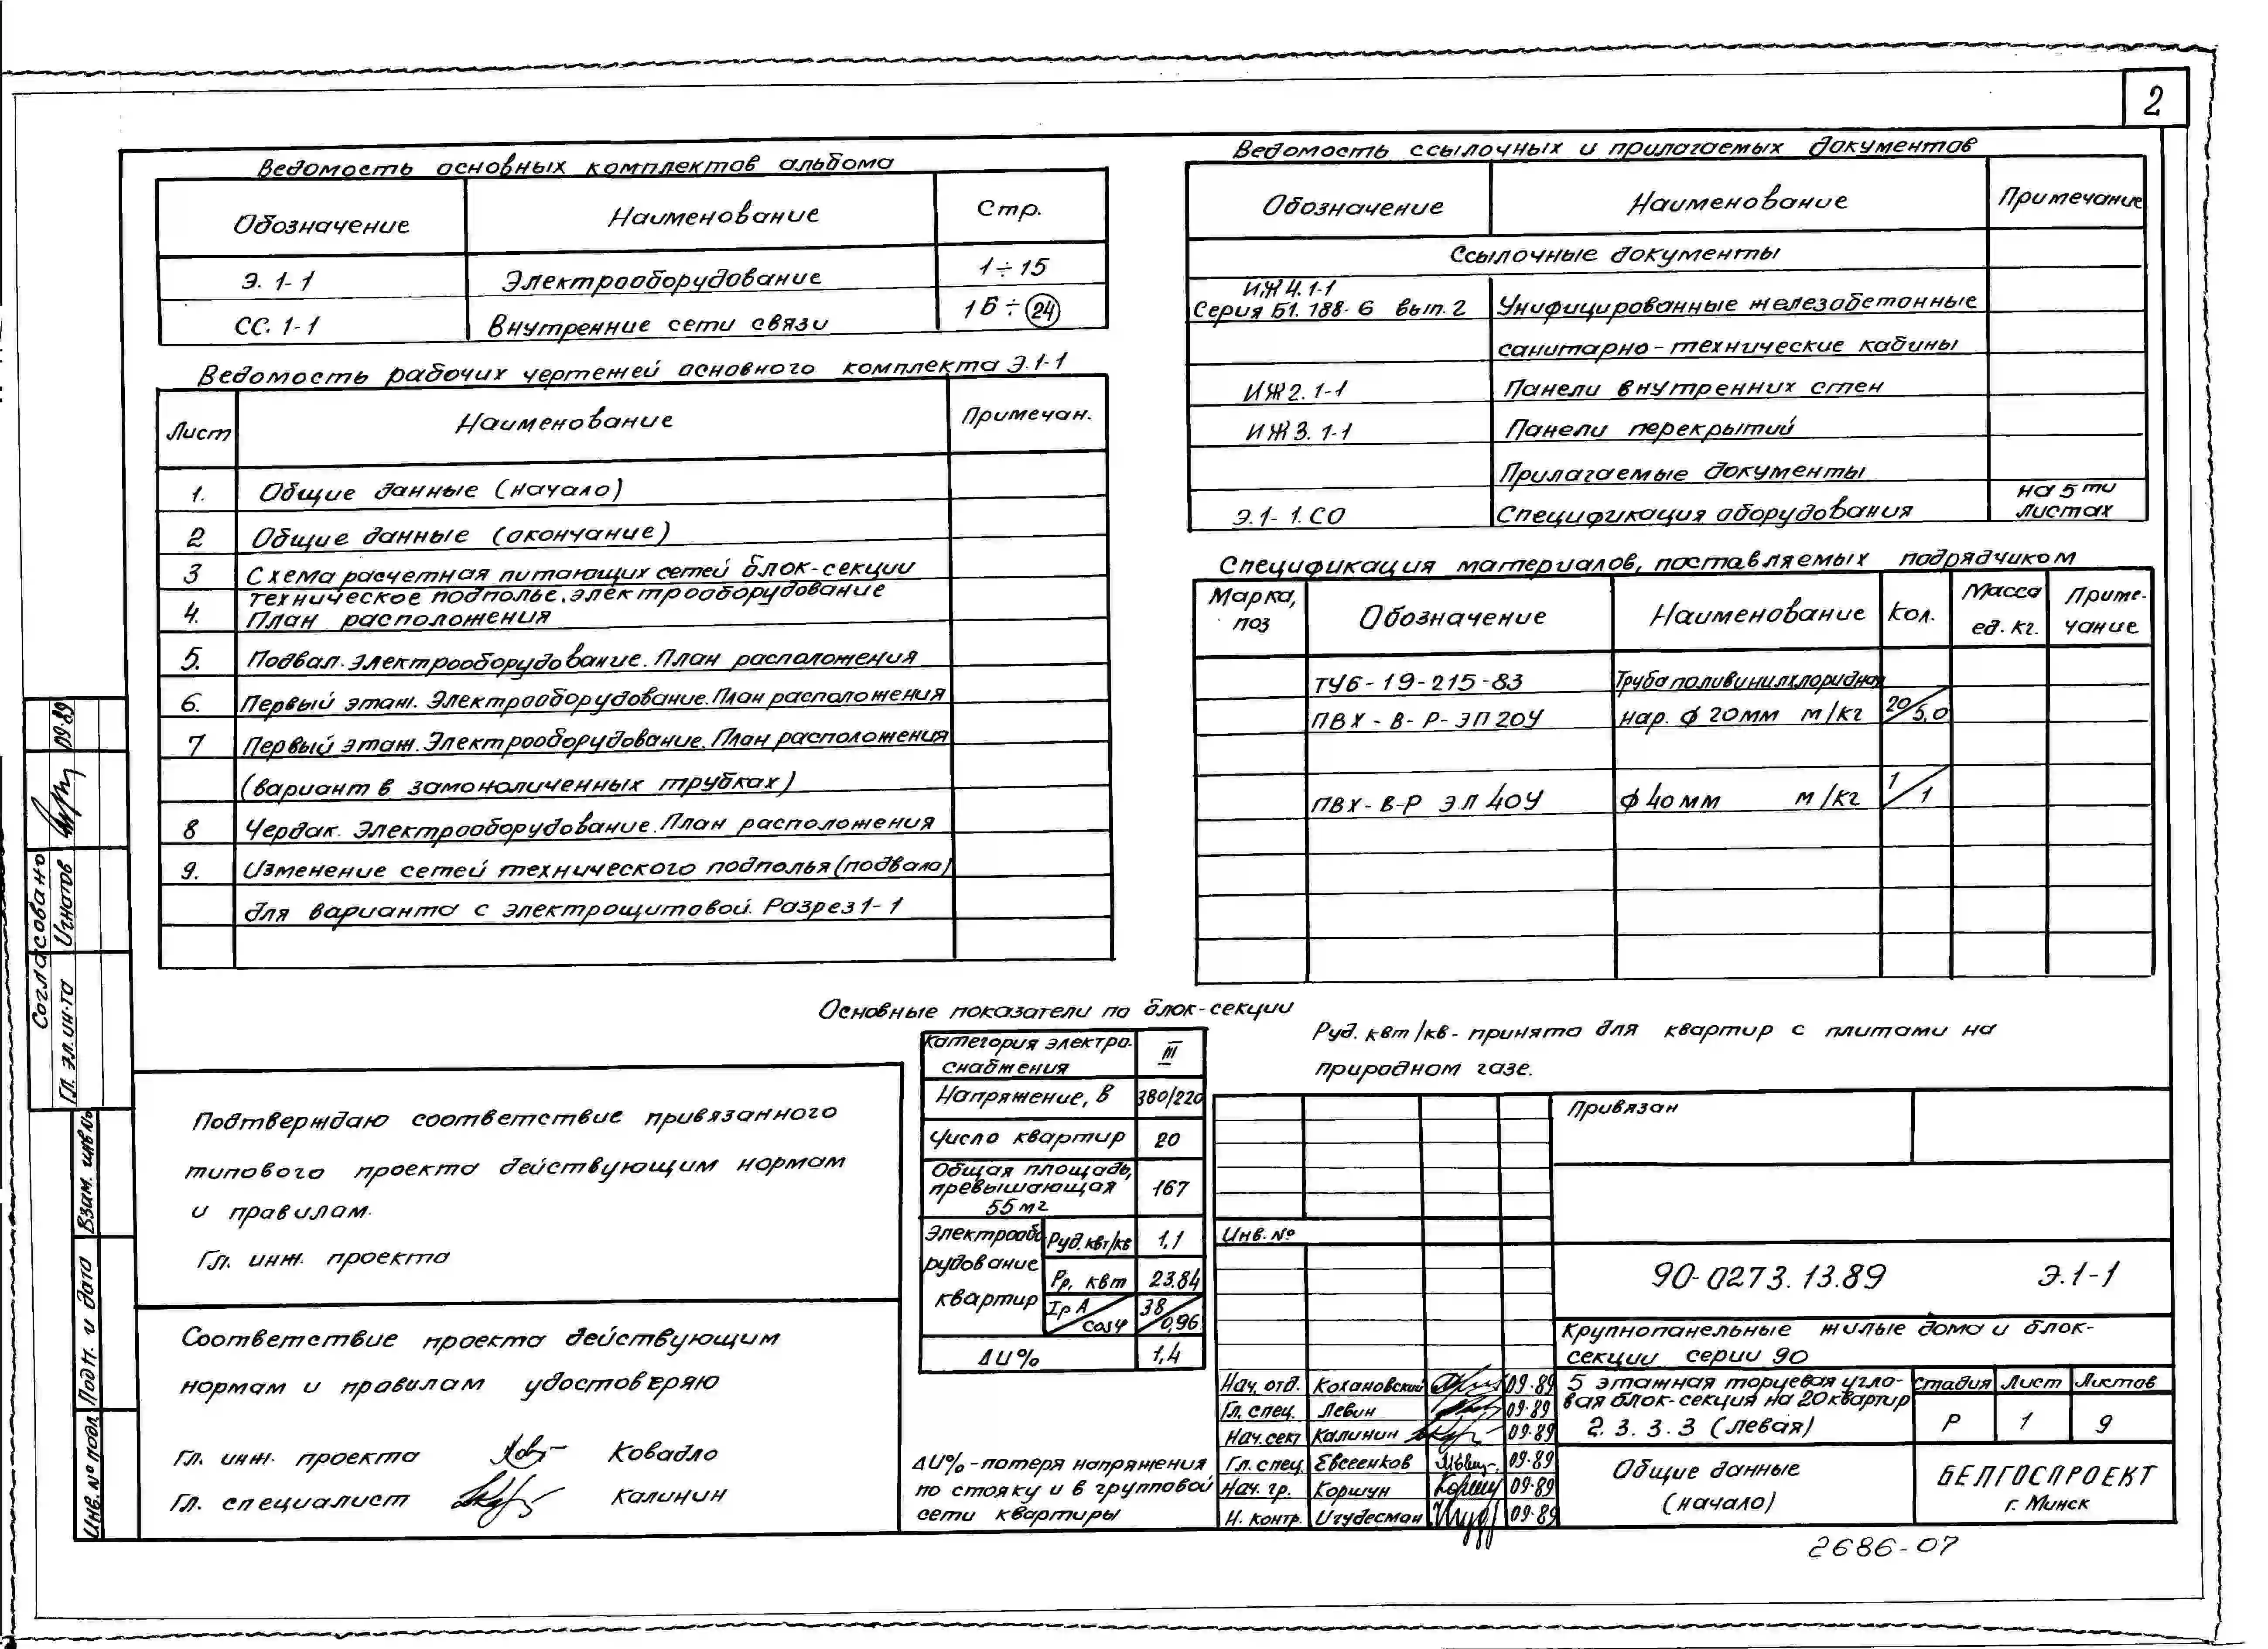 2
Ведомость основных комплектов альбома
Обозначение Наименование Стр.
Э. 1-1 Электрооборудование 1÷15
СС. 1-1 Внутренние сети связи 16÷24
Ведомость рабочих чертежей основного комплекта Э.1-1
Лист Наименование Примечан.
1. Общие данные (начало)
2 Общие данные (окончание)
3 Схема расчетная питающих сетей блок-секции
4. Техническое подполье. Электрооборудование
План расположения
5. Подвал. Электрооборудование. План расположения
6. Первый этаж. Электрооборудование. План расположения
7 Первый этаж. Электрооборудование. План расположения
(вариант в замоноличенных трубках)
8 Чердак. Электрооборудование. План расположения
9. Изменение сетей технического подполья (подвала)
для варианта с электрощитовой. Разрез 1-1
Ведомость ссылочных и прилагаемых документов
Обозначение Наименование Примечание
Ссылочные документы
ИЖ4.1-1
Серия Б1.188-6 вып. 2 Унифицированные железобетонные
санитарно-технические кабины
ИЖ2.1-1 Панели внутренних стен
ИЖ3.1-1 Панели перекрытий
Прилагаемые документы
Э.1-1.СО Спецификация оборудования на 5ти листах
Спецификация материалов, поставляемых подрядчиком
Марка, поз Обозначение Наименование Кол. Масса ед. кг. Примечание
ТУ6-19-215-83 Труба поливинилхлоридная
ПВХ-В-Р-ЭП20У нар. ф 20мм м/кг 20/5,0
ПВХ-В-Р ЭЛ 40У ф 40мм м/кг 1/1
Основные показатели по блок-секции
Категория электроснабжения III
Напряжение, В 380/220
Число квартир 20
Общая площадь, превышающая 55м2 167
Электрооборудование квартир
Руд. квт/кв 1,1
Рр, квт 23.84
Iр А/cosφ 38/0,96
ΔU% 1,4
ΔU%-потеря напряжения
по стояку и в групповой
сети квартиры
Руд. квт/кв - принята для квартир с плитами на
природном газе.
Подтверждаю соответствие привязанного
типового проекта действующим нормам
и правилам.
Гл. инж. проекта
Соответствие проекта действующим
нормам и правилам удостоверяю
Гл. инж. проекта Ковадло
Гл. специалист Калинин
Согласовано
Гл. эл. ин-та Игнатов 09.89
Взам. инв №
Подп. и дата
Инв. № подл.
Привязан
Инв. №
90-0273.13.89 Э.1-1
Крупнопанельные жилые дома и блок-
секции серии 90
Нач. отд. Кохановский 09.89
Гл. спец. Левин 09.89
Нач. сект Калинин 09.89
Гл. спец. Евсеенков 09.89
Нач. гр. Коршун 09.89
Н. контр. Игудесман 09.89
5 этажная торцевая угло-
вая блок-секция на 20 квартир
2.3.3.3 (левая)
Стадия Лист Листов
Р 1 9
Общие данные
(начало)
БЕЛГОСПРОЕКТ
г. Минск
2686-07